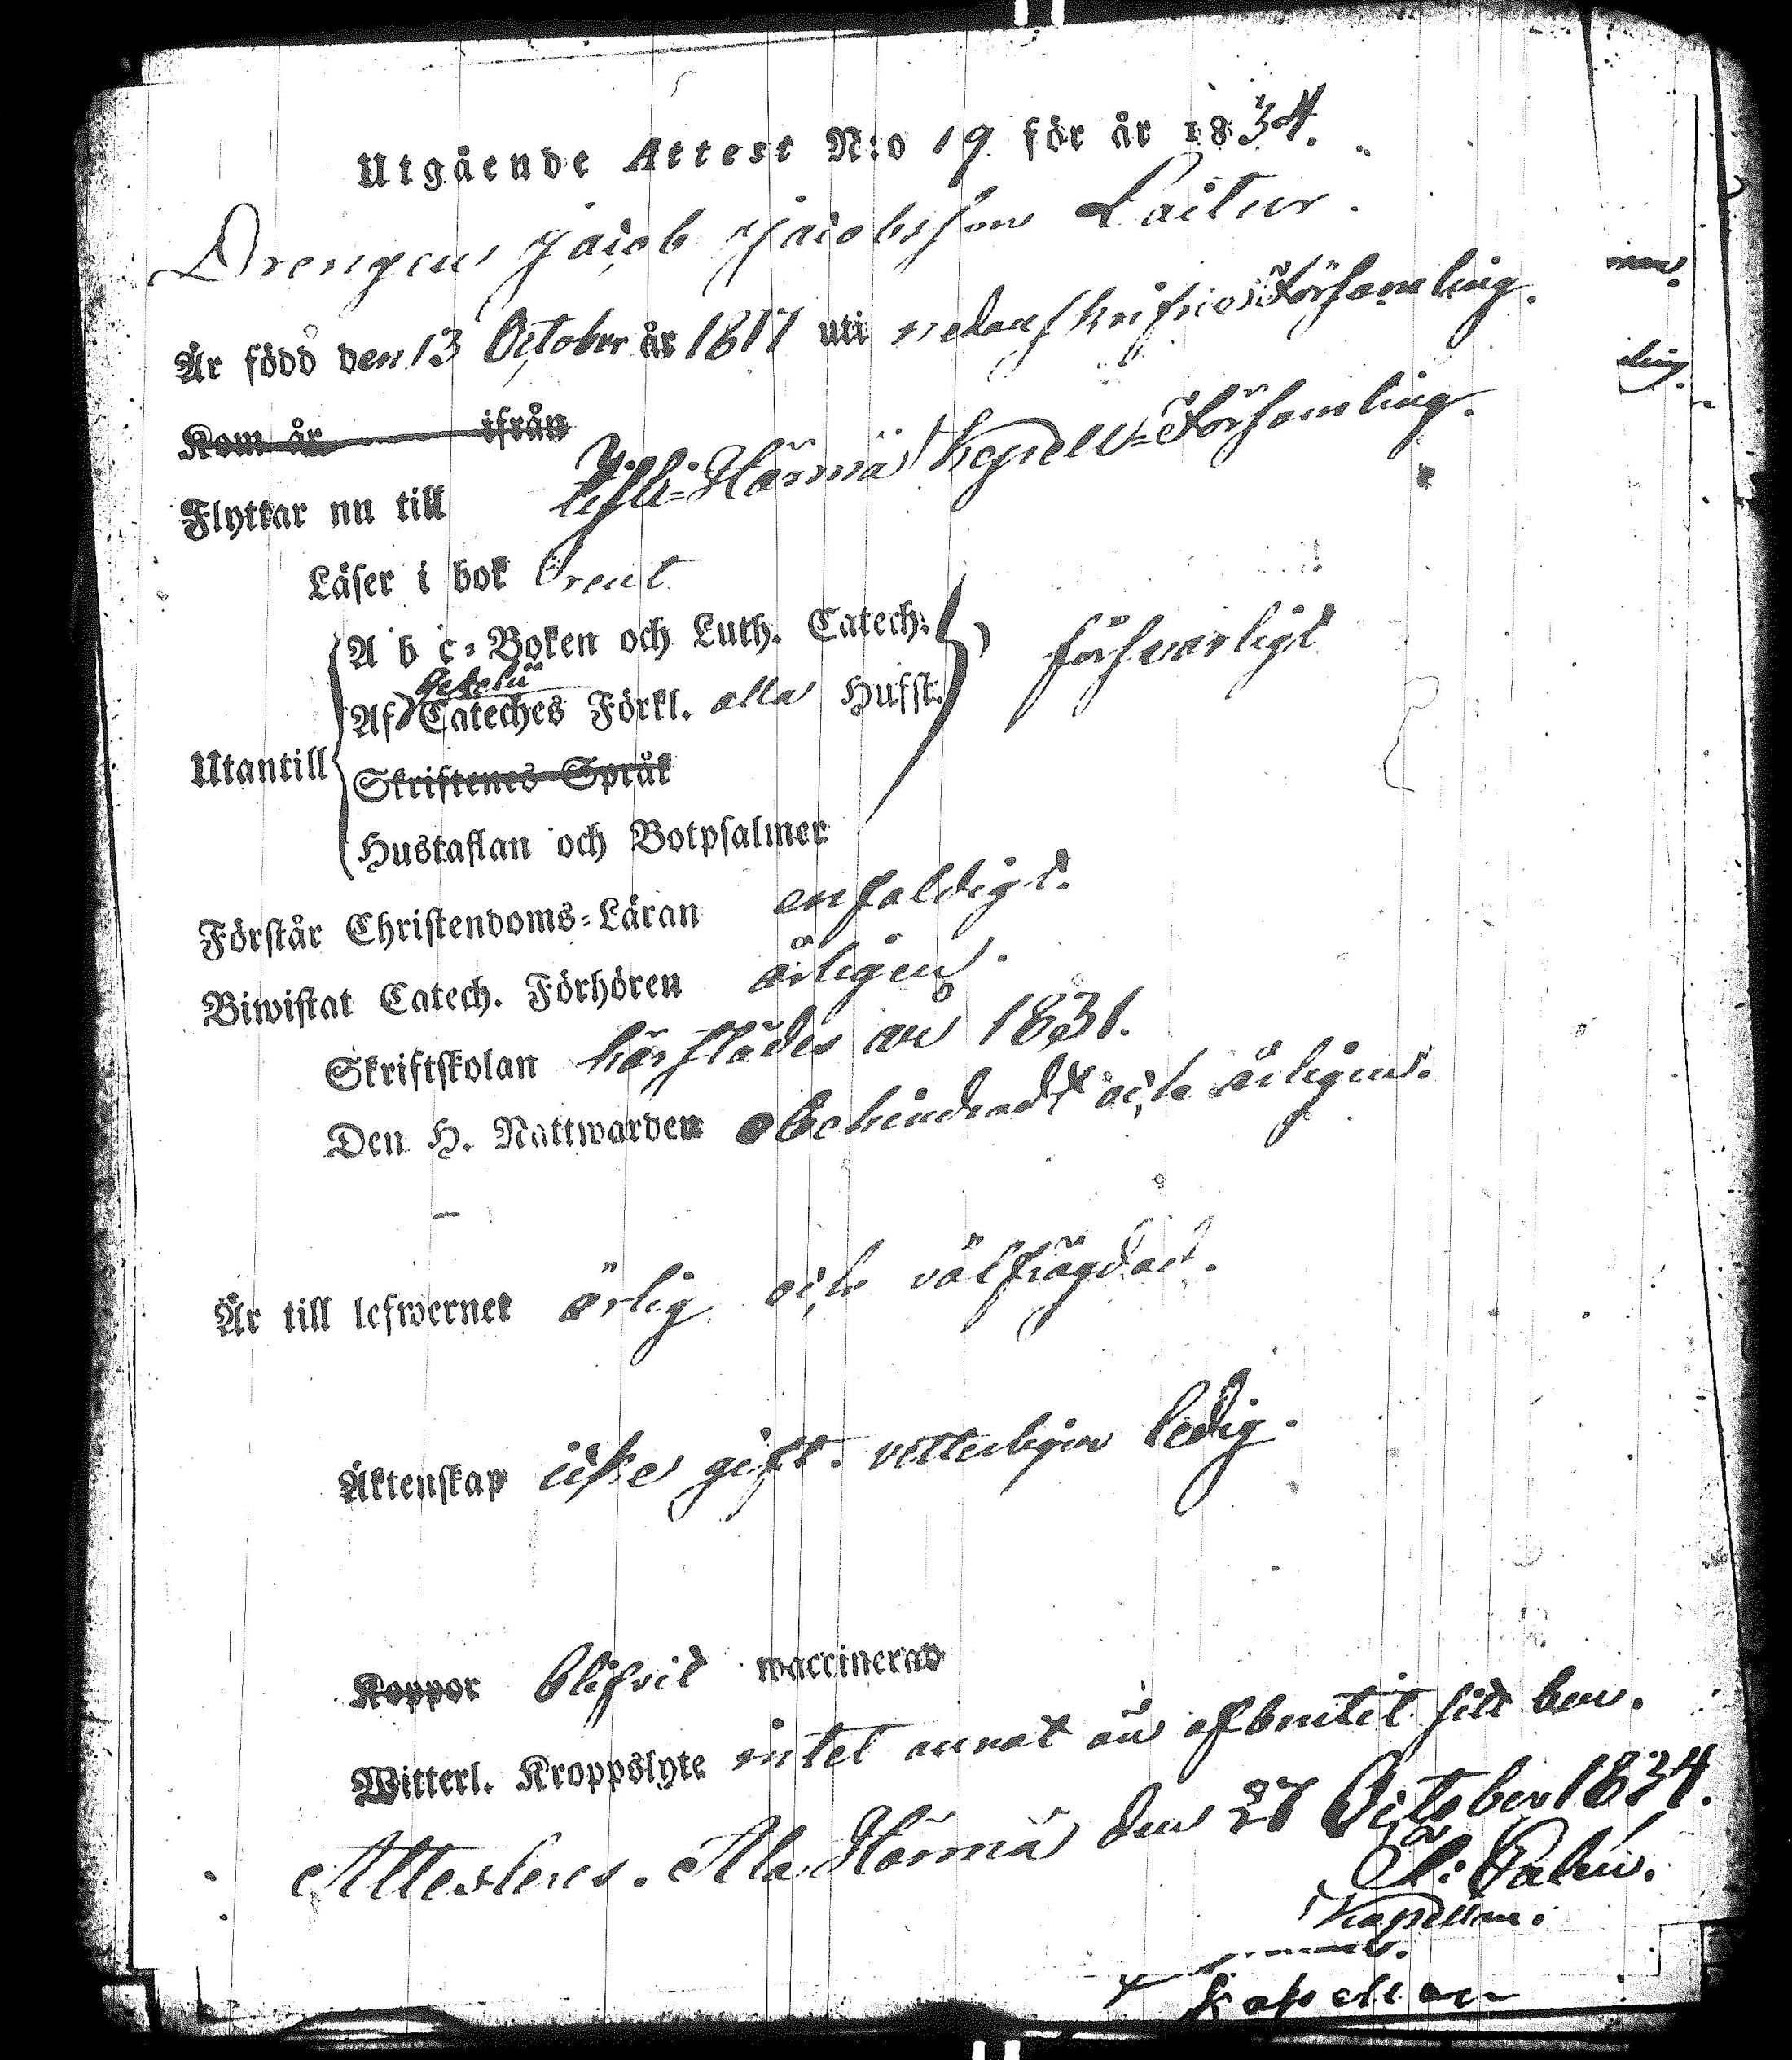 Utgående Attest N:o 19 för år 1834.
Drengen Jacob Jacobsson Laitur.
Är född den 13 October år 1817 uti nedanskrifne Församling.
Kom år ifrån
Flyttar nu till Ylihärmä Kapell-Församling.
ling.
Läser i bok rent
A b c-Boken och Luth. Catech.
försvarligt
Af Cateches Förkl. alla Hufst.
Utantill
Skriftenes Språk
Hustaflan och Botpsalmer
Förstår Christendoms-Läran enfaldigt.
Biwistat Catech. Förhören årligen.
Skriftskolan härstädes år 1831.
Den H. Nattwarden obehindradt och årligen.
Är till lefwernet ärlig och välfrägdad.
Äktenskap icke gift. vetterligen ledig.
Koppor blifvit waccinerad
Witterl. Kroppslyte intet annat än afbrutit sitt ben.
Attesteres. Ala Härmä den 27 October 1834.
Kapellan.
Kapellan